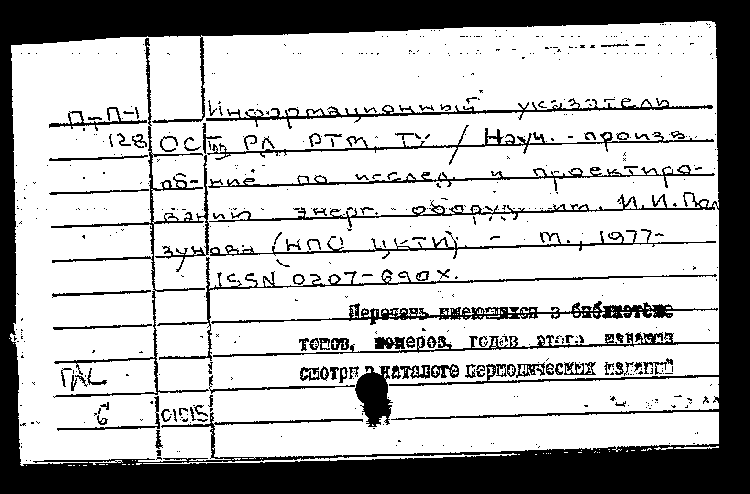 П-П-1 Информационный указатель
128 ОСТов, РД, РТМ, ТУ / Науч.-произв.
об-ние по исслед. и проектиро-
ванию энерг. оборуд. им. И.И. Пол
зунова (НПО ЦКТИ). - М., 1977-
ISSN 0207-690X.
Перечень имеющихся в библиотеке
томов, номеров, годов этого издания
смотри в каталоге периодических изданий
ГАС
6 01015